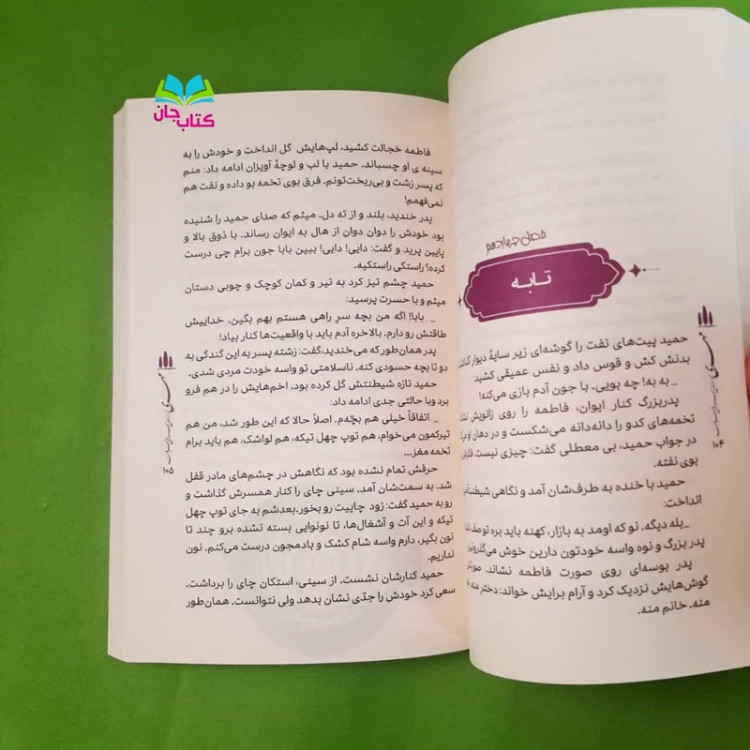 کتاب جان
فصل چهاردهم
تابه
حمید پیت‌های نفت را گوشه‌ای زیر سایهٔ دیوار گذاشت
بدنش کش و قوس داد و نفس عمیقی کشید:
_ به به! چه بویی. با جون آدم بازی می‌کنه!
پدربزرگ کنار ایوان، فاطمه را روی زانویش
تخمه‌های کدو را دانه‌دانه می‌شکست و در دهان او
در جواب حمید، بی معطلی گفت: چیزی نیست
بوی نفته.
حمید با خنده به طرف‌شان آمد و نگاهی
انداخت:
_بله دیگه. نو که اومد به بازار، کهنه باید بره تو صف
پدر بزرگ و نوه واسه خودتون دارین خوش می‌گذرونین
پدر بوسه‌ای روی صورت فاطمه نشاند.
گوش‌هایش نزدیک کرد و آرام برایش خواند: دختر منه،
منه. خانم منه.
۱۰۴
فاطمه خجالت کشید، لپ‌هایش گل انداخت و خودش را به
سینه ی او چسباند. حمید با لب و لوچهٔ آویزان ادامه داد: منم
که پسر زشت و بی‌ریخت‌تونم. فرق بوی تخمه بو داده و نفت هم
نمی‌فهمم!
پدر خندید، بلند و از ته دل. میثم که صدای حمید را شنیده
بود خودش را دوان دوان از هال به ایوان رساند. با ذوق بالا و
پایین پرید و گفت: دایی! دایی! ببین بابا جون برام چی درست
کرده؟ راستکی راستکیه.
حمید چشم تیز کرد به تیر و کمان کوچک و چوبی دستان
میثم و با حسرت پرسید:
_ بابا! اگه من بچه سر راهی هستم بهم بگین. خداییش
طاقتش رو دارم. بالاخره آدم باید با واقعیت‌ها کنار بیاد!
پدر همان‌طور که می‌خندید،گفت: زشته پسر به این گندگی به
دو تا بچه حسودی کنه. ناسلامتی تو واسه خودت مردی شدی.
حمید تازه شیطنتش گل کرده بود. اخم‌هایش را در هم فرو
برد وبا حالتی جدی ادامه داد:
_ اتفاقاً خیلی هم بچّه‌م. اصلاً حالا که این طور شد، من هم
تیرکمون می‌خوام، هم توپ چهل تیکه، هم لواشک، هم باید برام
تخمه مغز...
حرفش تمام نشده بود که نگاهش در چشم‌های مادر قفل
شد. به سمت‌شان آمد. سینی چای را کنار همسرش گذاشت و
رو به حمید گفت: زود چاییت رو بخور.بعدشم به جای توپ چهل
تیکه و این آت و آشغال‌ها، تا نونوایی بسته نشده برو چند تا
نون بگیر، دارم واسه شام کشک و بادمجون درست می‌کنم. نون
نداریم.
حمید کنارشان نشست. از سینی، استکان چای را برداشت.
سعی کرد خودش را جدّی نشان بدهد ولی نتوانست. همان‌طور
۱۰۵